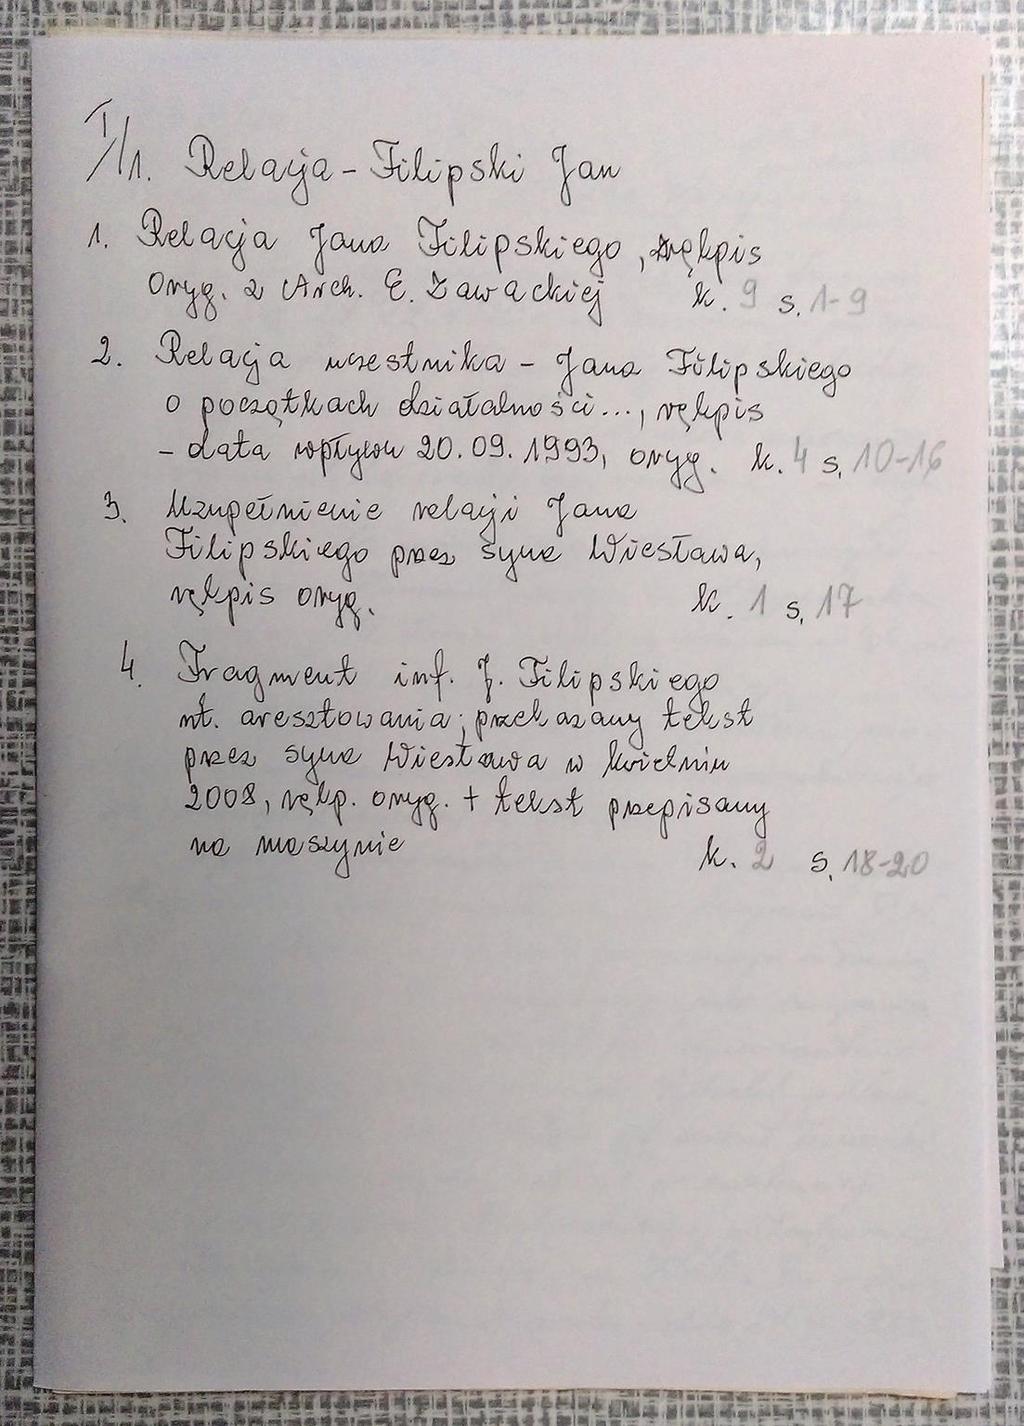 I/1. Relacja - Filipski Jan
1. Relacja Jana Filipskiego, rękpis
oryg. z Arch. E. Zawackiej k. 9 s. 1-9
2. Relacja uczestnika - Jana Filipskiego
o początkach działalności..., rękpis
- data wpływu 20.09.1993, oryg. k. 4 s. 10-16
3. Uzupełnienie relacji Jana
Filipskiego przez syna Wiesława,
rękpis oryg. k. 1 s. 17
4. Fragment inf. J. Filipskiego
nt. aresztowania; przekazany tekst
przez syna Wiesława w kwietniu
2008, rękp. oryg. + tekst przepisany
na maszynie k. 2 s. 18-20